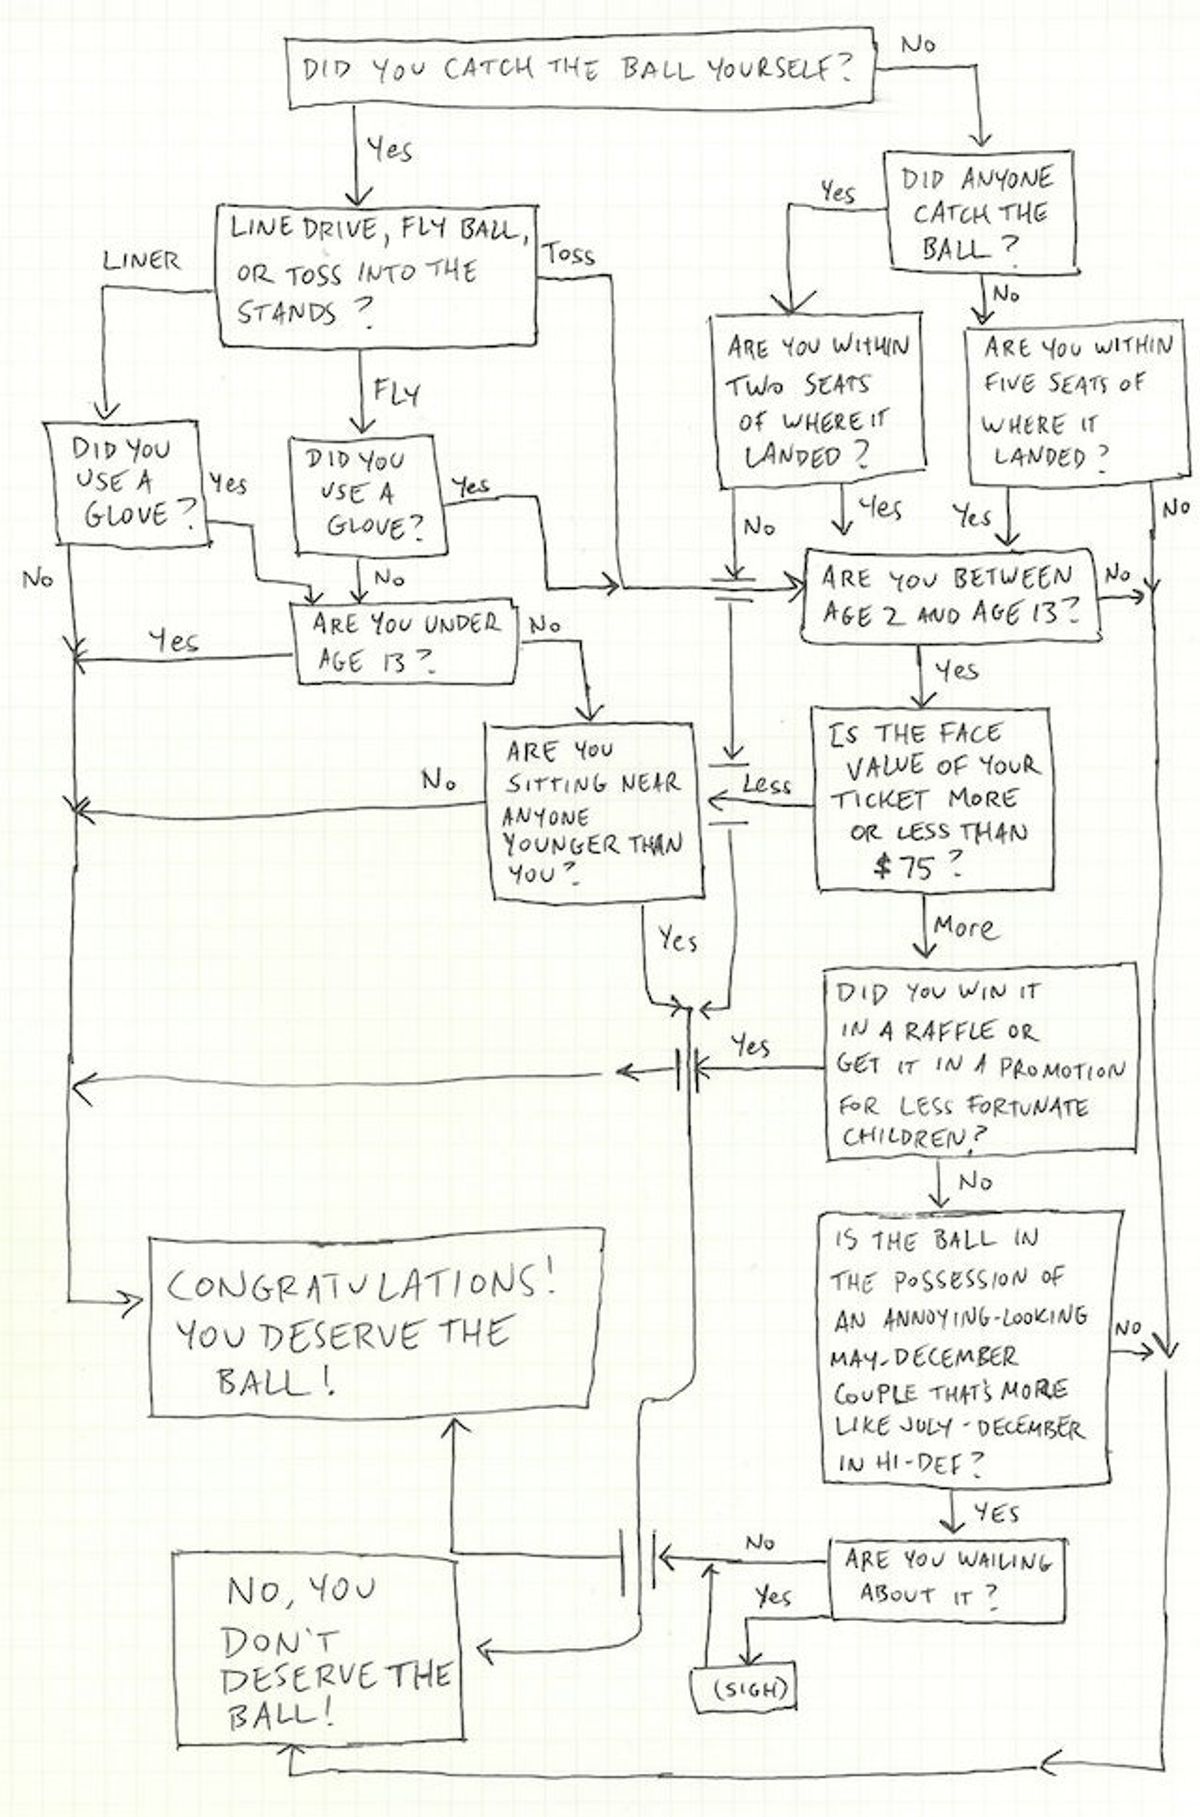 DID YOU CATCH THE BALL YOURSELF?
No
Yes
DID ANYONE
CATCH THE
BALL?
Yes
No
LINE DRIVE, FLY BALL,
OR TOSS INTO THE
STANDS?
LINER
TOSS
FLY
ARE YOU WITHIN
TWO SEATS
OF WHERE IT
LANDED?
ARE YOU WITHIN
FIVE SEATS OF
WHERE IT
LANDED?
DID YOU
USE A
GLOVE?
Yes
No
DID YOU
USE A
GLOVE?
Yes
No
No
Yes
Yes
No
ARE YOU BETWEEN
AGE 2 AND AGE 13?
No
Yes
ARE YOU UNDER
AGE 13?
Yes
No
ARE YOU
SITTING NEAR
ANYONE
YOUNGER THAN
YOU?
No
Yes
IS THE FACE
VALUE OF YOUR
TICKET MORE
OR LESS THAN
$75?
Less
More
DID YOU WIN IT
IN A RAFFLE OR
GET IT IN A PROMOTION
FOR LESS FORTUNATE
CHILDREN?
Yes
No
IS THE BALL IN
THE POSSESSION OF
AN ANNOYING-LOOKING
MAY-DECEMBER
COUPLE THAT'S MORE
LIKE JULY-DECEMBER
IN HI-DEF?
No
YES
CONGRATULATIONS!
YOU DESERVE THE
BALL!
ARE YOU WAILING
ABOUT IT?
No
Yes
(SIGH)
NO, YOU
DON'T
DESERVE THE
BALL!